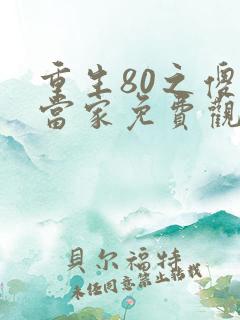 重生80之傻
當家免費觀
貝尔福特
未任同意禁止轉載